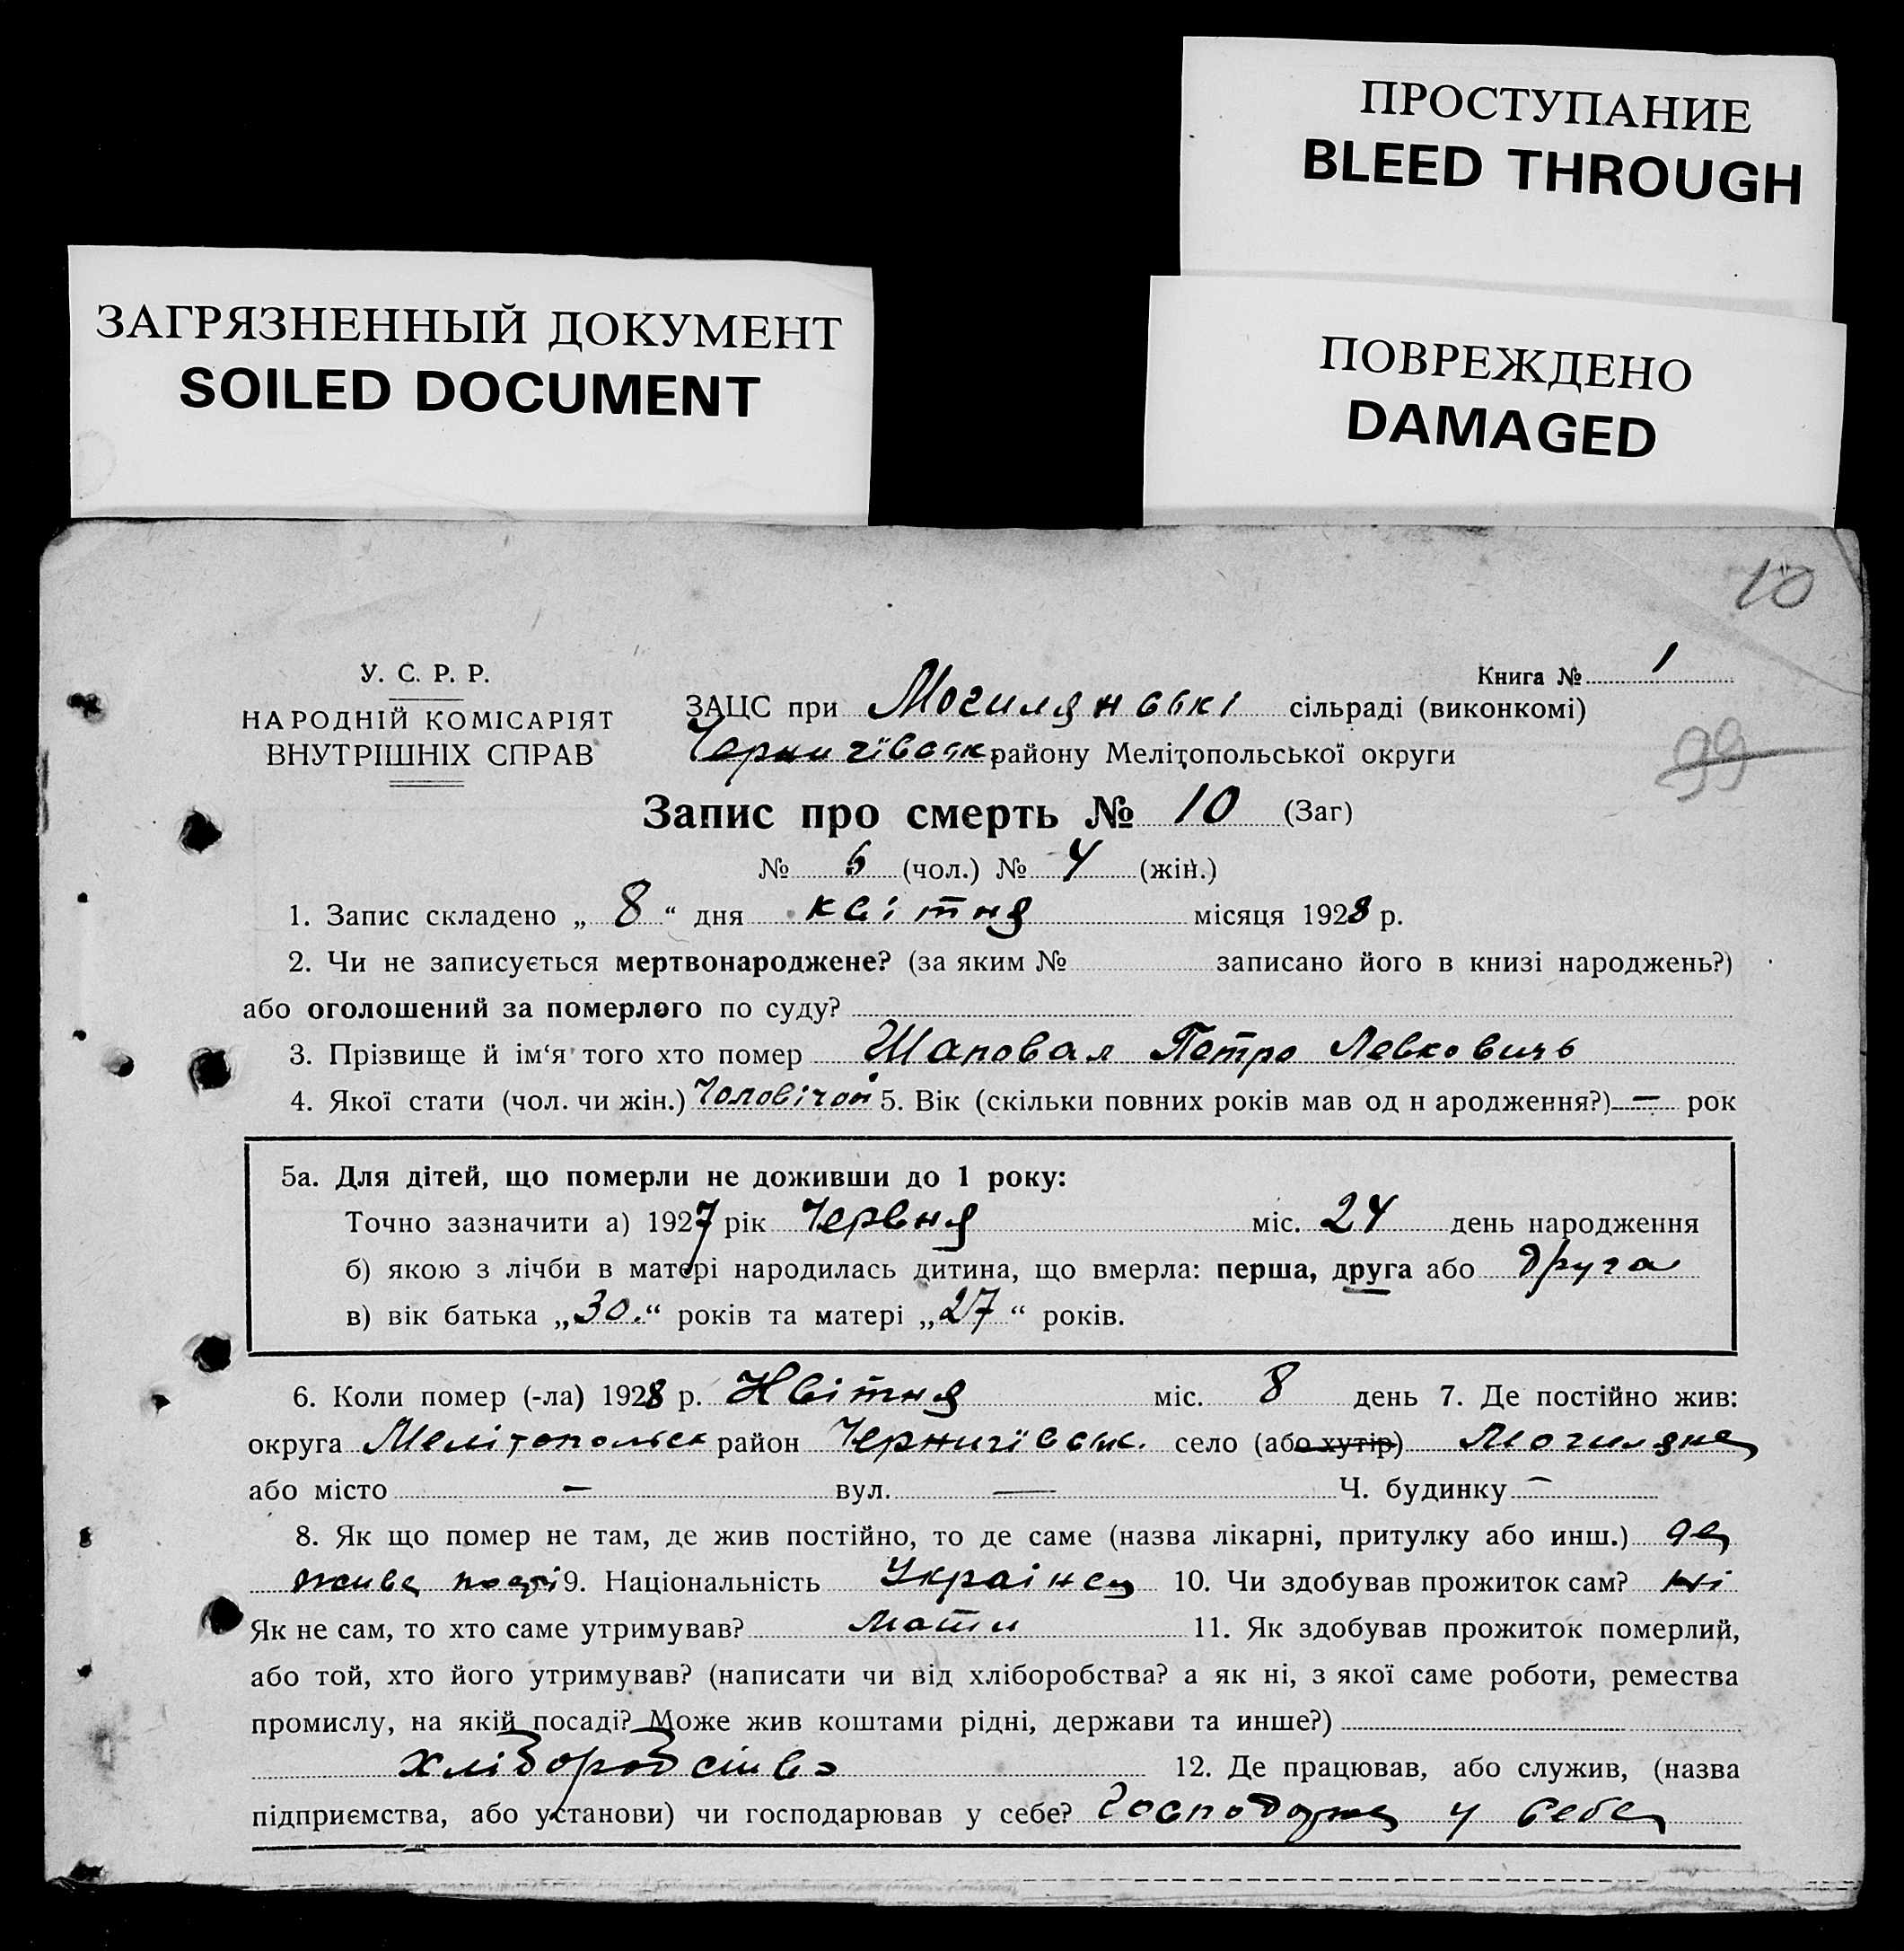 ПРОСТУПАНИЕ
BLEED THROUGH
ЗАГРЯЗНЕННЫЙ ДОКУМЕНТ
SOILED DOCUMENT
ПОВРЕЖДЕНО
DAMAGED
10
У. С. Р. Р.
НАРОДНІЙ КОМІСАРІЯТ
ВНУТРІШНІХ СПРАВ
Книга № 1
ЗАЦС при Могилянські сільраді (виконкомі)
Чернигівськ району Мелітопольської округи
99
Запис про смерть № 10 (Заг)
№ 6 (чол.) № 4 (жін.)
1. Запис складено „ 8 “ дня квітня місяця 1928 р.
2. Чи не записується мертвонароджене? (за яким № записано його в книзі народжень?)
або оголошений за померлого по суду?
3. Прізвище й ім‘я того хто помер Шаповал Петро Левковичь
4. Якої стати (чол. чи жін.) Чоловічої 5. Вік (скільки повних років мав од н ародження?) — рок
5а. Для дітей, що померли не доживши до 1 року:
Точно зазначити а) 1927 рік Червня міс. 24 день народження
б) якою з лічби в матері народилась дитина, що вмерла: перша, друга або друга
в) вік батька „30.“ років та матері „27“ років.
6. Коли помер (-ла) 1928 р. Квітня міс. 8 день 7. Де постійно жив:
округа Мелітопольск район Чернигівськ. село (або хутір) Могиляне
або місто — вул. — Ч. будинку —
8. Як що помер не там, де жив постійно, то де саме (назва лікарні, притулку або инш.) де
живе 9. Національність Українец 10. Чи здобував прожиток сам? Ні
Як не сам, то хто саме утримував? мати 11. Як здобував прожиток померлий,
або той, хто його утримував? (написати чи від хліборобства? а як ні, з якої саме роботи, ремества
промислу, на якій посаді? Може жив коштами рідні, держави та инше?)
хліборобство 12. Де працював, або служив, (назва
підприємства, або установи) чи господарював у себе? Господарює у себе